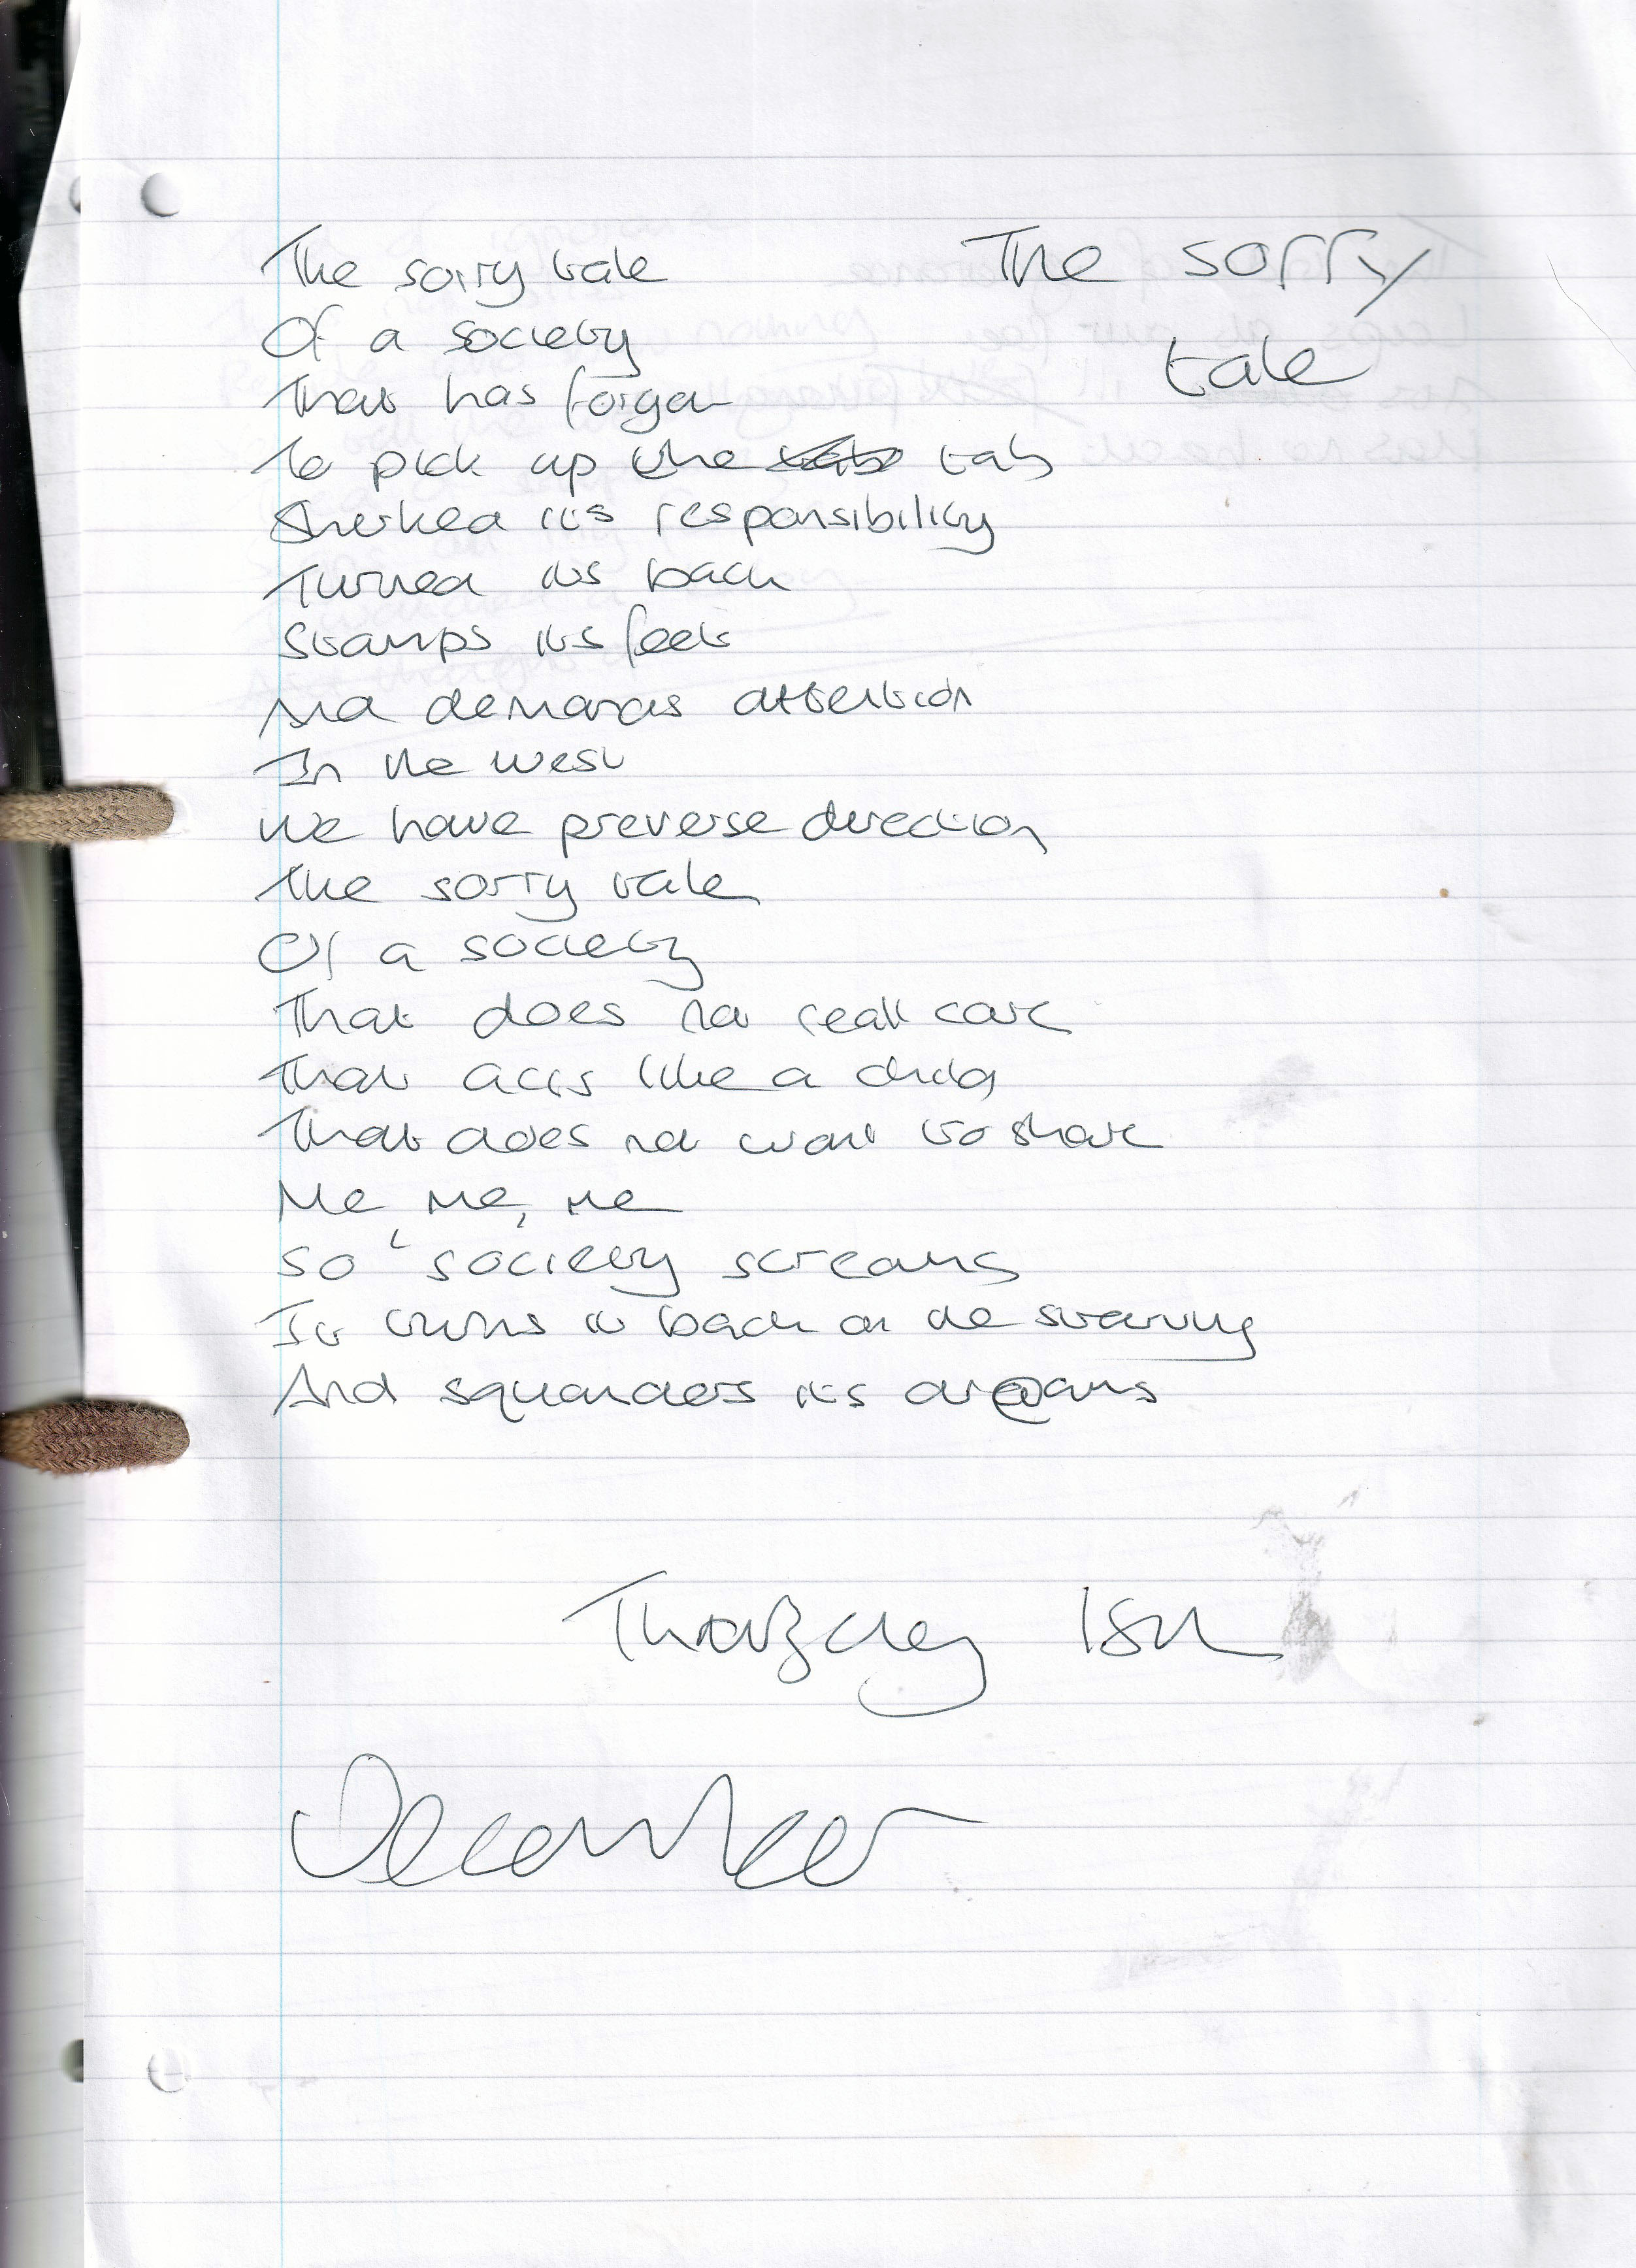 The sorry
tale
The sorry tale
Of a society
That has forgot
To pick up the tab
Sherked its responsibility
Turned its back
Stamps its feet
And demands attention
In the west
We have preverse direction
The sorry tale
Of a society
That does not reall care
That acts like a child
That does not want to share
Me, me, me
So society screams
It turns it back on the starving
And squanders its dreams
Thursday 15th
December